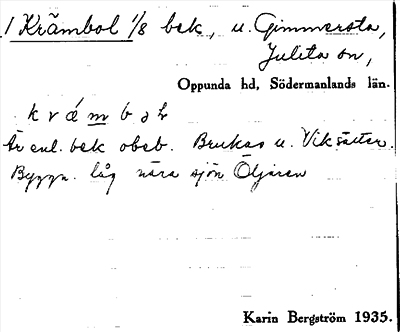 1 Krämbol 1/8 bek, u. Gimmersta,
Julita sn,
Oppunda hd, Södermanlands län.
k r ä m b o l
Är enl. bek obeb. Brukas u. Viksäter.
Byggn. låg nära sjön Öljaren
Karin Bergström 1935.